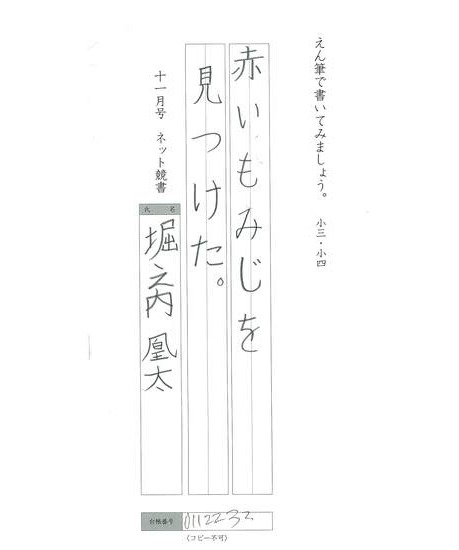 えん筆で書いてみましょう。　小三・小四
赤いもみじを
見つけた。
十一月号　ネット競書
氏　名
堀之内　凰太
台帳番号
0112232
(コピー不可)